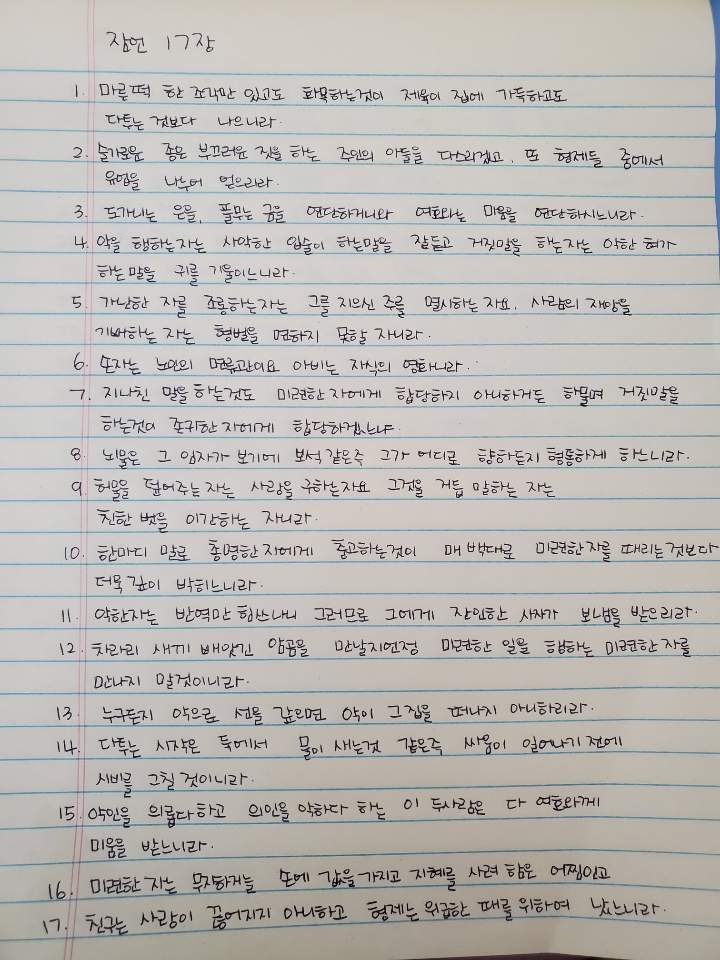 잠언 17장
1. 마른떡 한 조각만 있고도 화목하는것이 제육이 집에 가득하고도
다투는 것보다 나으니라.
2. 슬기로운 종은 부끄러운 짓을 하는 주인의 아들을 다스리겠고, 또 형제들 중에서
유업을 나누어 얻으리라.
3. 도가니는 은을, 풀무는 금을 연단하거니와 여호와는 마음을 연단하시느니라.
4. 악을 행하는자는 사악한 입술이 하는말을 잘듣고 거짓말을 하는자는 악한 혀가
하는말을 귀를 기울이느니라.
5. 가난한 자를 조롱하는자는 그를 지으신 주를 멸시하는 자요. 사람의 재앙을
기뻐하는 자는 형벌을 면하지 못할 자니라.
6. 손자는 노인의 면류관이요 아비는 자식의 영화니라.
7. 지나친 말을 하는것도 미련한 자에게 합당하지 아니하거든 하물며 거짓말을
하는것이 존귀한 자에게 합당하겠느냐.
8. 뇌물은 그 임자가 보기에 보석 같은즉 그가 어디로 향하든지 형통하게 하느니라.
9. 허물을 덮어주는 자는 사랑을 구하는자요 그것을 거듭 말하는 자는
친한 벗을 이간하는 자니라.
10. 한마디 말로 총명한 자에게 충고하는것이 매 백대로 미련한자를 때리는것보다
더욱 깊이 박히느니라.
11. 악한자는 반역만 힘쓰나니 그러므로 그에게 잔인한 사자가 보냄을 받으리라.
12. 차라리 새끼 빼앗긴 암곰을 만날지언정 미련한 일을 행하는 미련한 자를
만나지 말것이니라.
13. 누구든지 악으로 선을 갚으면 악이 그집을 떠나지 아니하리라.
14. 다투는 시작은 둑에서 물이 새는것 같은즉 싸움이 일어나기 전에
시비를 그칠 것이니라.
15. 악인을 의롭다하고 의인을 악하다 하는 이 두사람은 다 여호와께
미움을 받느니라.
16. 미련한 자는 무지하거늘 손에 값을 가지고 지혜를 사려 함은 어찜인고
17. 친구는 사랑이 끊어지지 아니하고 형제는 위급한 때를 위하여 났느니라.